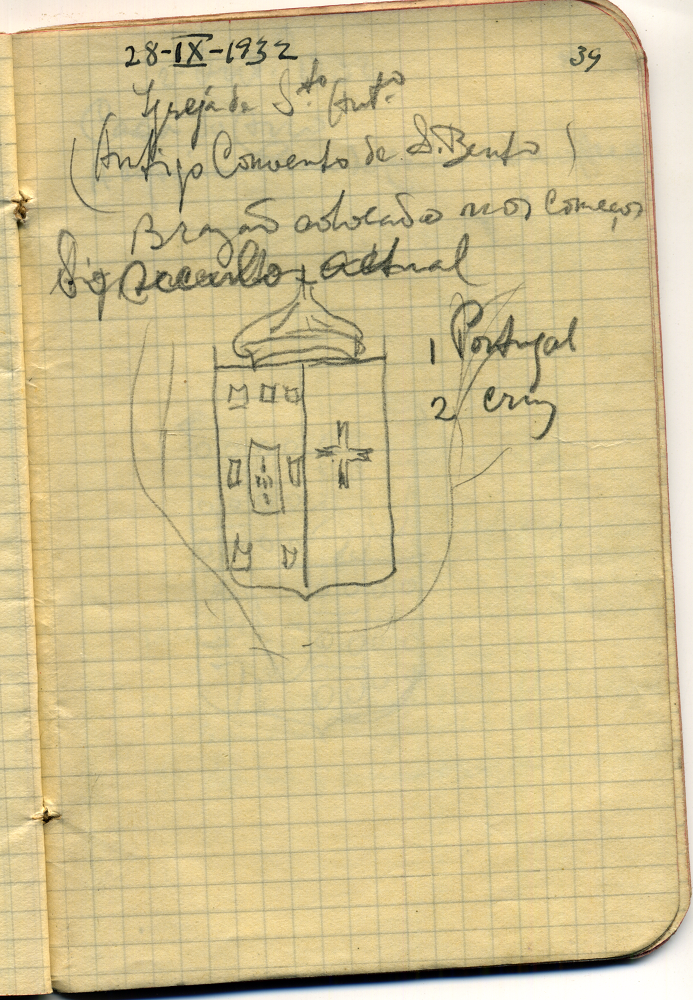 28-IX-1932
39
Igreja de S.to Ant.o
(Antigo Convento de S. Bento)
Brazão colocado nos começos
seculo actual
1 Portugal
2 cruz